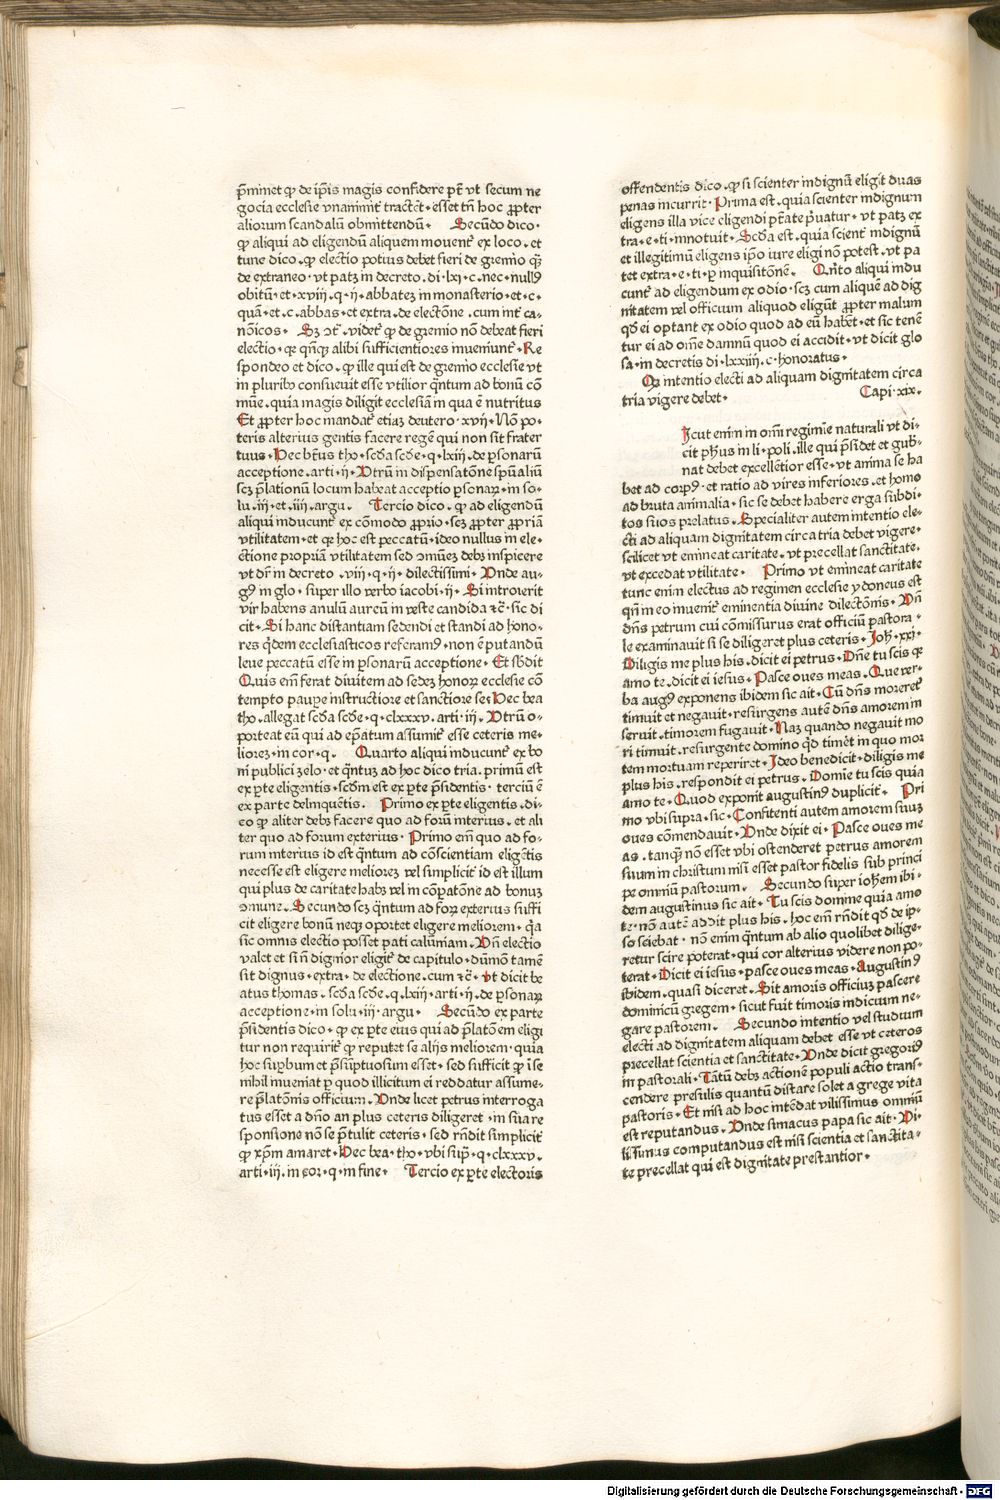 p̄minet ꝙ de ip̄is magis confidere pt̄ vt secum ne
gocia ecclesie vnanimit̄ tractet · esset tn̄ hoc ꝓpter
aliorum scandalū obmittendū · Secūdo dico ·
ꝙ aliqui ad eligendū aliquem mouent̄ ex loco · et
tune dico · ꝙ electio potius debet fieri de gremio q̄ꝫ
de extraneo · vt patꝫ in decreto · di · lxj · c · nec · nullꝰ
obitū · et · xviij · q · ij · abbateꝫ in monasterio · et · c ·
quā · et · c · abbas · et extra · de electōne · cum int̄ ca-
nōicos · Sꝫ ↄt̄ · videt̄ ꝙ de gremio nō debeat fieri
electio · qꝛ qn̄qꝫ alibi sufficientiores inueniunt̄ · Re
spondeo et dico · ꝙ ille qui est de gremio ecclesie vt
in pluribꝰ consueuit esse vtilior q̄ntum ad bonū cō
mūe · quia magis diligit ecclesiā in qua ē nutritus
Et ꝓpter hoc mandat̄ etiaꝫ deutero · xvij · Nō po-
teris alterius gentis facere regē qui non sit frater
tuus · Hec bt̄us tho · sc̄da sc̄de · q · lxiij · de ꝑsonarū
acceptione · arti · ij · Vtrū in dispensatōne spūaliū
scꝫ p̄lationū locum habeat acceptio ꝑsonaꝝ · in so-
lu · iij · et · iiij · argu · Tercio dico · ꝙ ad eligendū
aliqui inducunt̄ ex cōmodo ꝓprio · scꝫ ꝓpter ꝓpriā
vtilitatem · et qꝛ hoc est peccatū · ideo nullus in ele-
ctione propriā vtilitatem sed om̄nuꝫ debꝫ inspicere
vt dr̄ in decreto · viij · q · ij · dilectissimi · Vnde au-
gꝰ in glo · super illo verbo iacobi · ij · Si introierit
vir habens anulū aureū in veste candida ⁊c̄ · sic di
cit · Si hanc distantiam sedendi et standi ad hono-
res q̄dem ecclesiasticos referamꝰ · non ē putandū
leue peccatū esse in ꝑsonarū acceptione · Et sb̄dit
Quis em̄ ferat diuitem ad sedeꝫ honoꝝ ecclesie cō
tempto paupe instructiore et sanctiore seꝛ Hec bea
tho · allegat sc̄da sc̄de · q · clxxxv · arti · iij · Vtrū o-
porteat eū qui ad ep̄atum assumit̄ esse ceteris me-
lioreꝫ · in cor · q · Quarto aliqui inducunt̄ ex bo
ni publici zelo · et q̄ntuꝫ ad hoc dico tria · primū est
ex ꝑte eligentis · scd̄m est ex ꝑte p̄sidentis · terciū ē
ex parte delinquētis · Primo ex ꝑte eligentis · di-
co ꝙ aliter debꝫ facere quo ad forū interius · et ali
ter quo ad forum exterius · Primo em̄ quo ad fo-
rum interius id est q̄ntum ad cōscientiam eligētis
necesse est eligere melioreꝫ vel simplicit̄ id est illum
qui plus de caritate habꝫ vel in cōꝑatōne ad bonuꝫ
ↄmune · Secundo scꝫ q̄ntum ad foꝝ exterius suffi
cit eligere bonū neqꝫ oportet eligere meliorem · q̄a
sic omnis electio posset pati calūniam · Vn̄ electio
valet et si n̄ dignior eligit̄ de capitulo · dūmō tamē
sit dignus · extra · de electione · cum ⁊c̄ · vt dicit be
atus thomas · sc̄da sc̄de · q · lxiij · arti · ij · de ꝑsonaꝝ
acceptione · in solu · iij · argu · Secūdo ex parte
p̄sidentis dico · ꝙ ex ꝑte eius qui ad p̄latōem eligi
tur non requirit̄ ꝙ reputet se alijs meliorem · quia
hoc suꝑbum et p̄sūptuosum esset · sed sufficit ꝙ ī se
nihil inueniat ꝑ quod illicitum ei reddatur assume-
re p̄latōnis officium · Vnde licet petrus interroga
tus esset a dn̄o an plus ceteris diligeret · in sua re
sponsione nō se p̄tulit ceteris · sed rn̄dit simplicit̄
ꝙ xp̄m amaret · Hec bea · tho · vbi sup̄ · q · clxxxv ·
arti · iij · in cor · q · in fine · Tercio ex ꝑte electoris
offendentis dico · ꝙ si scienter indignū eligit duas
penas incurrit · Prima est · quia scienter indignum
eligens illa vice eligendi pt̄ate p̄uatur · vt patꝫ ex
tra · e · ti · innotuit · Sc̄da est · quia scient̄ indignū
et illegitimū eligens ip̄o iure eligi nō potest · vt pa
tet extra · e · ti · ꝑ inquisitōnē · Qn̄to aliqui indu
cunt̄ ad eligendum ex odio · scꝫ cum aliquē ad dig
nitatem vel officium aliquod eligūt ꝓpter malum
qd̄ ei optant ex odio quod ad eū habēt · et sic tenē
tur ei ad om̄e damnū quod ei accidit · vt dicit glo
sa · in decretis di · lxxiiij · c · honoratus ·
Qꝙ intentio electi ad aliquam dignitatem circa
tria vigere debet · Capi · xix ·
Sicut enim in om̄i regimīe naturali vt di-
cit ph̄us in li · poli · ille qui p̄sidet et gub̄-
nat debet excellētior esse · vt anima se ha
bet ad corpꝰ · et ratio ad vires inferiores · et homo
ad bruta animalia · sic se debet habere erga subdi-
tos suos prelatus · Specialiter autem intentio ele-
cti ad aliquam dignitatem circa tria debet vigere ·
scilicet vt emineat caritate · vt precellat sanctitate ·
vt excedat vtilitate · Primo vt emineat caritate
tunc enim electus ad regimen ecclesie ydoneus est
qn̄ in eo inuenit̄ eminentia diuine dilectōnis · Vn̄
dn̄s petrum cui cōmissurus erat officiū pastora-
le examinauit si se diligeret plus ceteris · Joh̄ · xxj ·
Diligis me plus his · dicit ei petrus · Dn̄e tu scis ꝙ
amo te · dicit ei iesus · Pasce oues meas · Que ver-
ba augꝰ exponens ibidem sic ait · Cū dn̄s moreret̄
timuit et negauit · resurgens autē dn̄s amorem in
seruit · timorem fugauit · Naꝫ quando negauit mo
ri timuit · resurgente domino qd̄ timēt in quo mor
tem mortuam reperiret · Ideo benedicit · diligis me
plus his · respondit ei petrus · Domīe tu scis quia
amo te · Quod exponit augustinꝰ duplicit̄ · Pri
mo vbi supra · sic · Confitenti autem amorem suuꝫ
oues cōmendauit · Vnde dixit ei · Pasce oues me
as · tanqꝫ nō esset vbi ostenderet petrus amorem
suum in christum nisi esset pastor fidelis sub princi
pe omniū pastorum · Secundo super ioh̄em ibi-
dem augustinus sic ait · Tu scis domine quia amo
te · nō autē addit plus his · hoc em̄ rn̄dit qd̄ de ip-
so sciebat · nō enim q̄ntum ab alio quolibet dilige-
retur scire poterat · qui cor alterius videre non po-
terat · Dicit ei iesus · pasce oues meas · Augustinꝰ
ibidem · quasi diceret · Sit amoris officiuꝫ pascere
dominicū gregem · sicut fuit timoris indicum ne-
gare pastorem · Secundo intentio vel studium
electi ad dignitatem aliquam debet esse vt ceteros
precellat scientia et sanctitate · Vnde dicit gregoriꝰ
in pastorali · Tātū debꝫ actionē populi actio trans-
cendere presulis quantū distare solet a grege vita
pastoris · Et nisi ad hoc intēdat vilissimus omniū
est reputandus · Vnde simacus papa sic ait · Vi-
lissimus computandus est nisi scientia et sanctita-
te precellat qui est dignitate prestantior ·
Digitalisierung gefördert durch die Deutsche Forschungsgemeinschaft - DFG